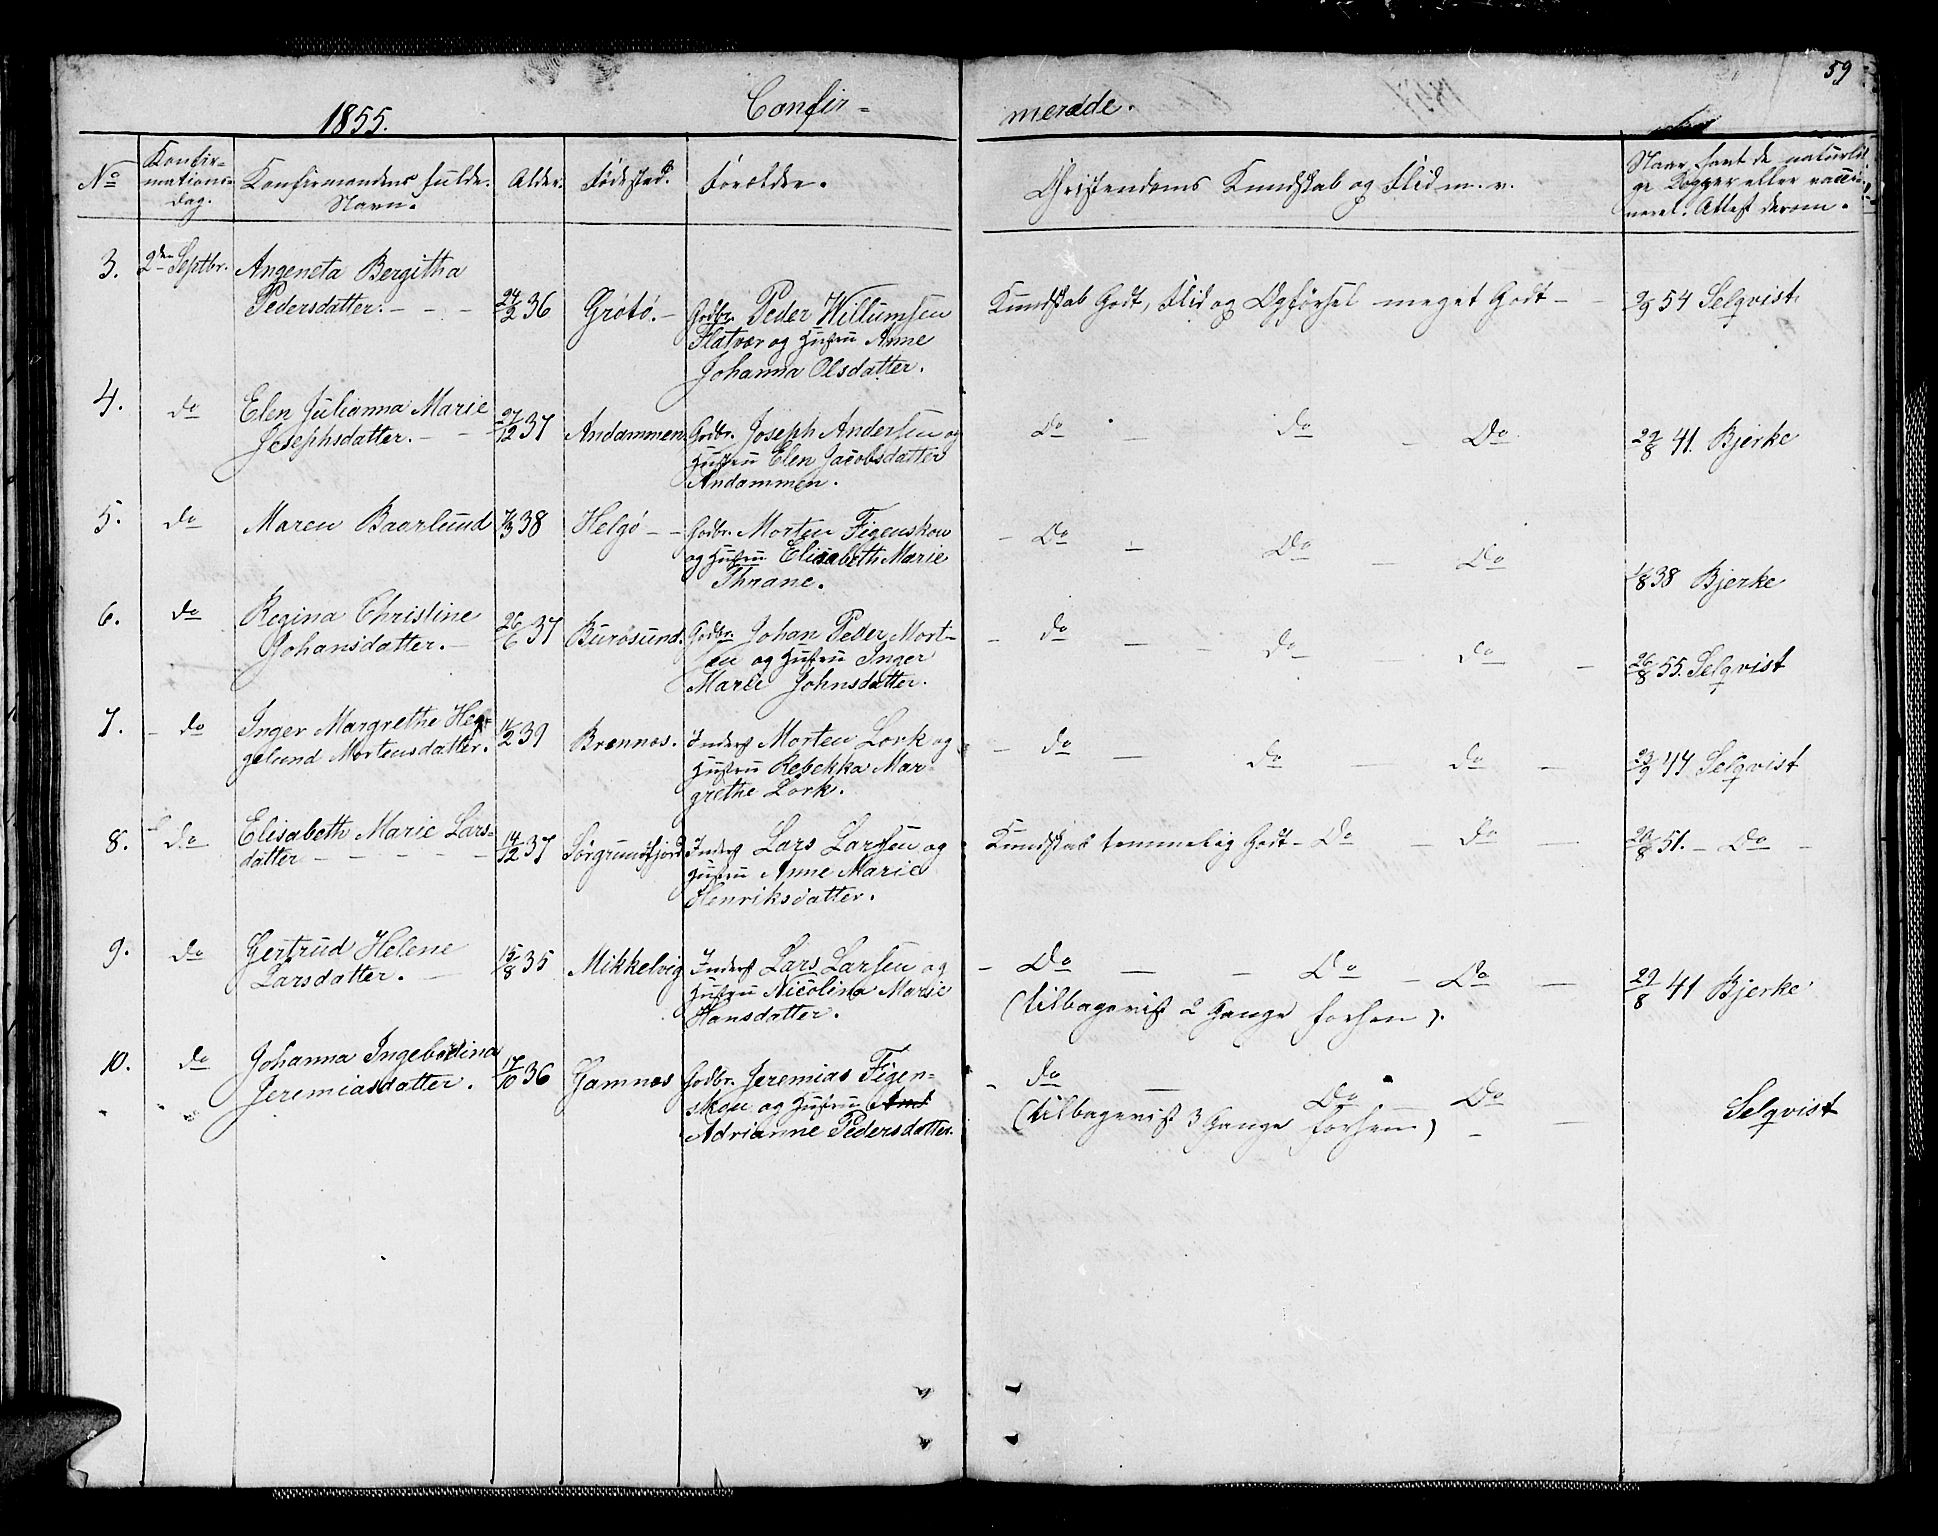 59
1855.
Confir=
merede.
No
Konfir=
mations=
dag.
Konfirmandens fulde
Navn.
Alder.
Fødested.
Forældre.
Christendoms Kundskab og Flid m. v.
Naar havt de naturli
ge Kopper eller vacci=
neret. Attest derom.
3. 2den Septbr. Angeneta Bergitha
Pedersdatter. - - - 24/2 36 Grøtø. - Gdbr. Peder Willumsen
Flatvær og Hustru Anne
Johanna Olsdatter.
Kundskab Godt, Flid og Opførsel meget Godt - - 2/9 54 Selqvist.
4. do Elen Julianna Marie
Josephsdatter. - - 27/12 37 Andammen. Gdbr. Joseph Andersen og
Hustru Elen Jacobsdatter
Andammen.
Do - do - Do 29/8 41. Bjerke
5. do Maren Baarlund 7/3 38 Helgø - - Gdbr. Morten Figenskou
og Hustru Elisabeth Marie
Thrane.
- Do - Do - Do 1/8 38 Bjerke
6. do Regina Christine
Johansdatter. - 26/6 37 Burøsund. Gdbr. Johan Peder Mort-
sen og Hustru Inger
Marie Johnsdatter.
- do - - do - do - 26/8 55. Selqvist
7. - do Inger Margrethe Heg-
gelund Mortensdatter. 16/2 39 Brennes. Inderst Morten Lork og
Hustru Rebekka Mar-
grethe Lork.
- do - do - do - 23/9 44 Selqvist
8. do Elisabeth Marie Lars=
datter - - - - - 14/12 37 Sørgrundfjord Inderst Lars Larsen og
Hustru Anne Marie
Henriksdatter.
Kundskab temmelig Godt - Do - do - 20/8 51. - Do -
9. do Gertrud Helene
Larsdatter. - 15/8 35 Mikkelvig Inderst Lars Larsen og
Hustru Nicolina Marie
Hansdatter.
- Do - - Do - Do - 29/8 41 Bjerke
(tilbagevist 2 Gange forhen).
10. do Johanna Ingebordina
Jeremiasdatter. 17/10 36 Gamnes Gdbr. Jeremias Figen-
skou og Hustru
Adrianne Pedersdatter.
- do - Do - Do -
(tilbagevist 3 Gange forhen)
Selqvist